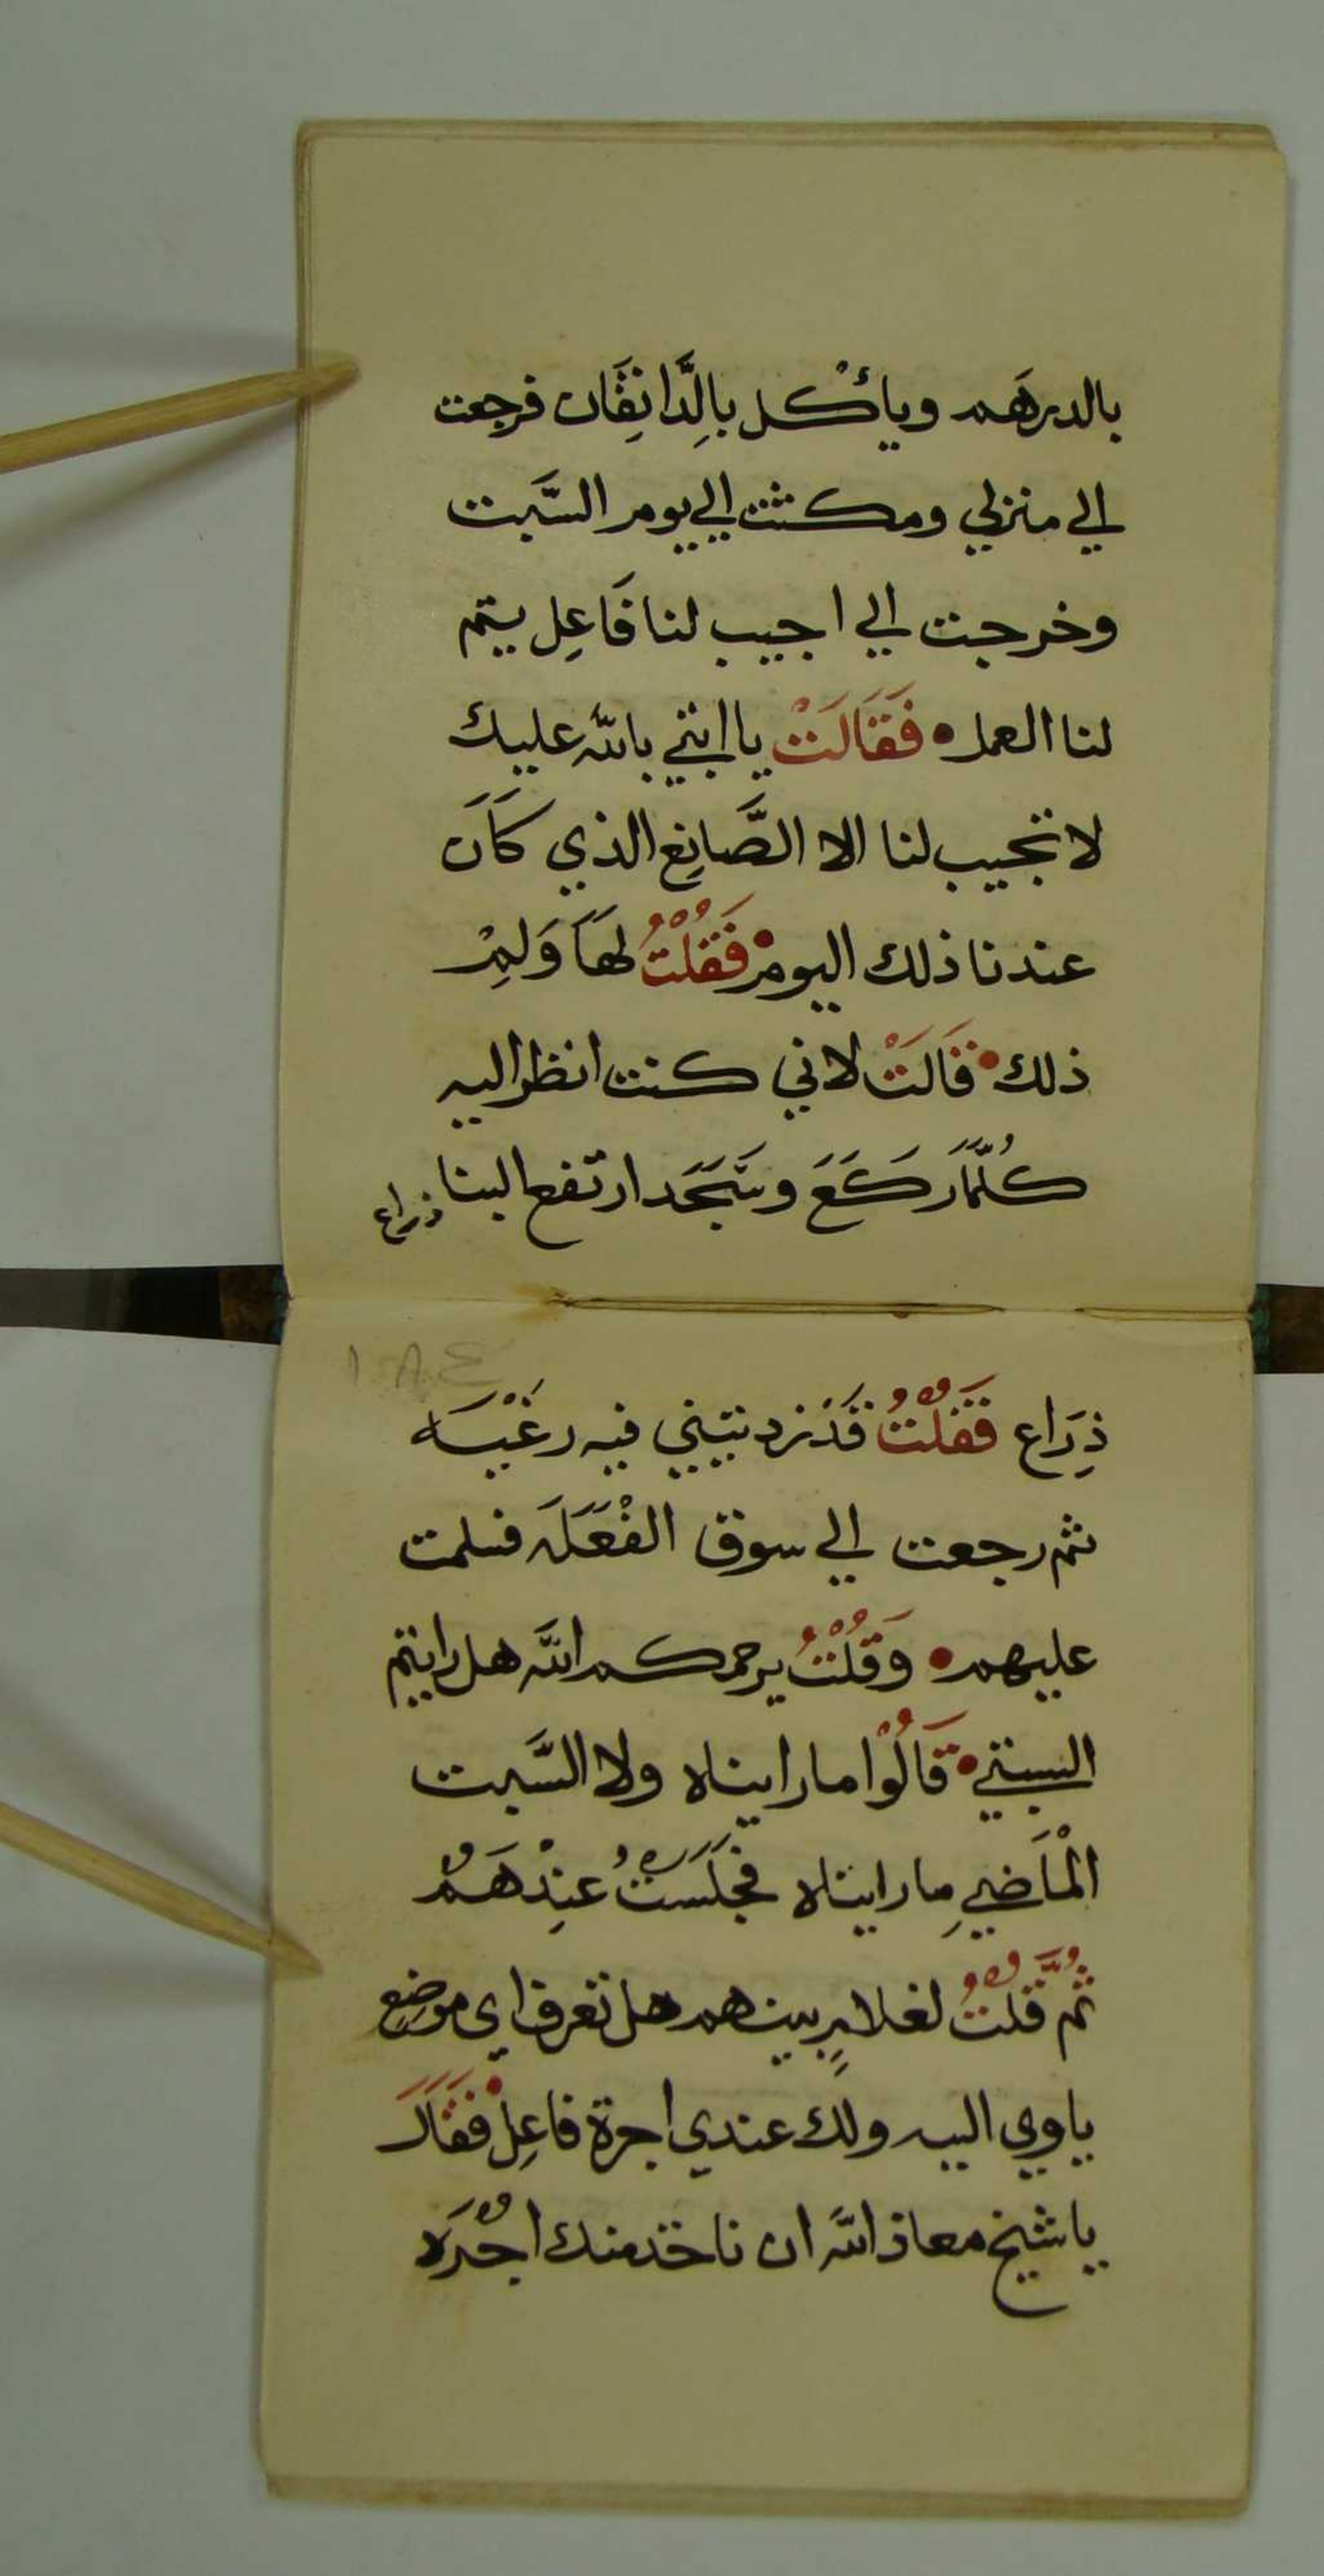 بالدرهَم ويأْكل بالِدَّانِقَان فرجعت
الي منزلي ومكثت الي يوم السَّبت
وخرجت الي اجيب لنا فَاعِل يتم
لنا العمل • فَقَالَتْ يا ابتي بالله عليك
لا تجيب لنا الا الصَّانِع الذي كَانَ
عندنا ذلك اليومْ • فَقُلْتُ لهَا وَلِمْ
ذلك • قَالَتْ لاني كنت انظر اليه
كُلَّمَا رَكَعَ وسَجَد ارتفع البنا
ذراع
١٠٨٤
ذِرَاع فَقُلْتُ قَدْ زدتيني فيه رغْبَه
ثم رجعت الي سوق الفْعَلَه فسلمت
عليهم • وَقُلْتُ يرحمكم الله هل رايتم
السبتي • قَالُوْا ما رايناه ولا السَّبت
الْمَاضِي ما رايناه فجَلَسْتُ عِنْدهَمْ
ثُمَّ قُلْتُ لغلامٍ بينهم هل تعرف اي موضع
ياوي اليه ولك عندي اجرة فاعِلْ • فَقَالَ
يا شيخ معاذ الله ان ناخذ منك اجْرَه